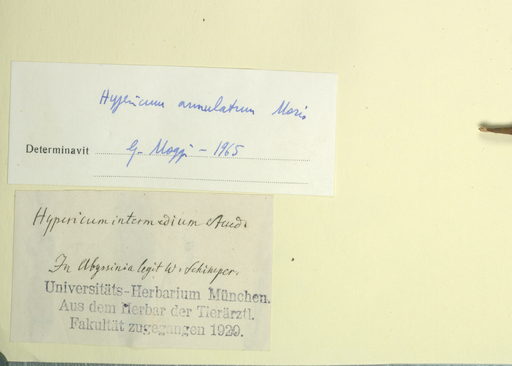 Hypericum annulatum Moris
Determinavit G. Moggi - 1965
Hypericum intermedium Steud.
In Abyssinia legit W. Schimper.
Universitäts-Herbarium München.
Aus dem Herbar der Tierärztl.
Fakultät zugegangen 1920.